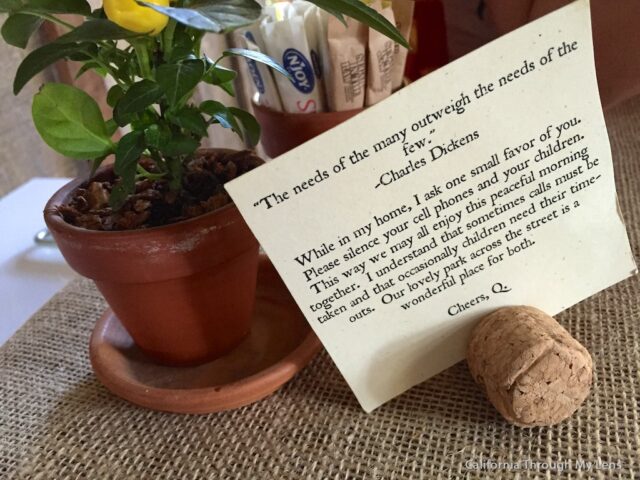 "The needs of the many outweigh the needs of the
few."
-Charles Dickens
While in my home, I ask one small favor of you.
Please silence your cell phones and your children.
This way we may all enjoy this peaceful morning
together. I understand that sometimes calls must be
taken and that occasionally children need their time-
outs. Our lovely park across the street is a
wonderful place for both.
Cheers, Q.
NJOY
California Through My Lens